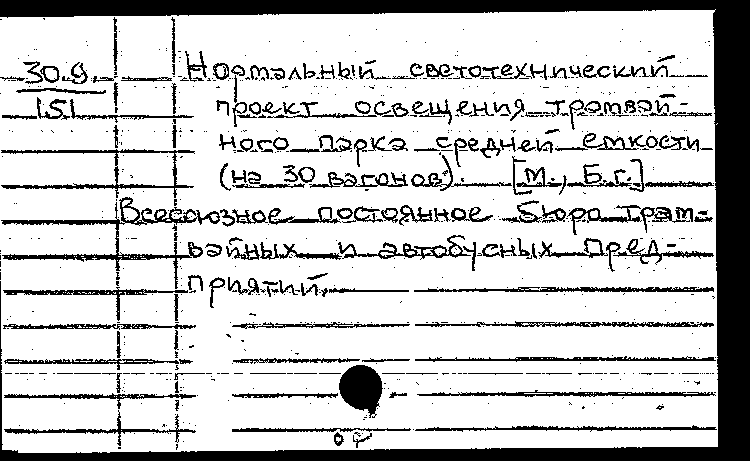 30.9.
151
Нормальный светотехнический
проект освещения трамвай-
ного парка средней емкости
(на 30 вагонов). [М., Б.г.]
Всесоюзное постоянное бюро трам-
вайных и автобусных пред-
приятий.